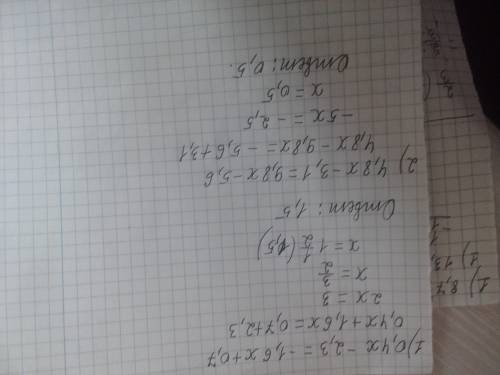 1) 0,4x - 2,3 = -1,6x + 0,7
0,4x + 1,6x = 0,7 + 2,3
2x = 3
x = 3/2
x = 1 1/2 (1,5)
Ответ: 1,5
2) 4,8x - 3,1 = 9,8x - 5,6
4,8x - 9,8x = -5,6 + 3,1
-5x = -2,5
x = 0,5
Ответ: 0,5.
1) 8,7
1) 13,